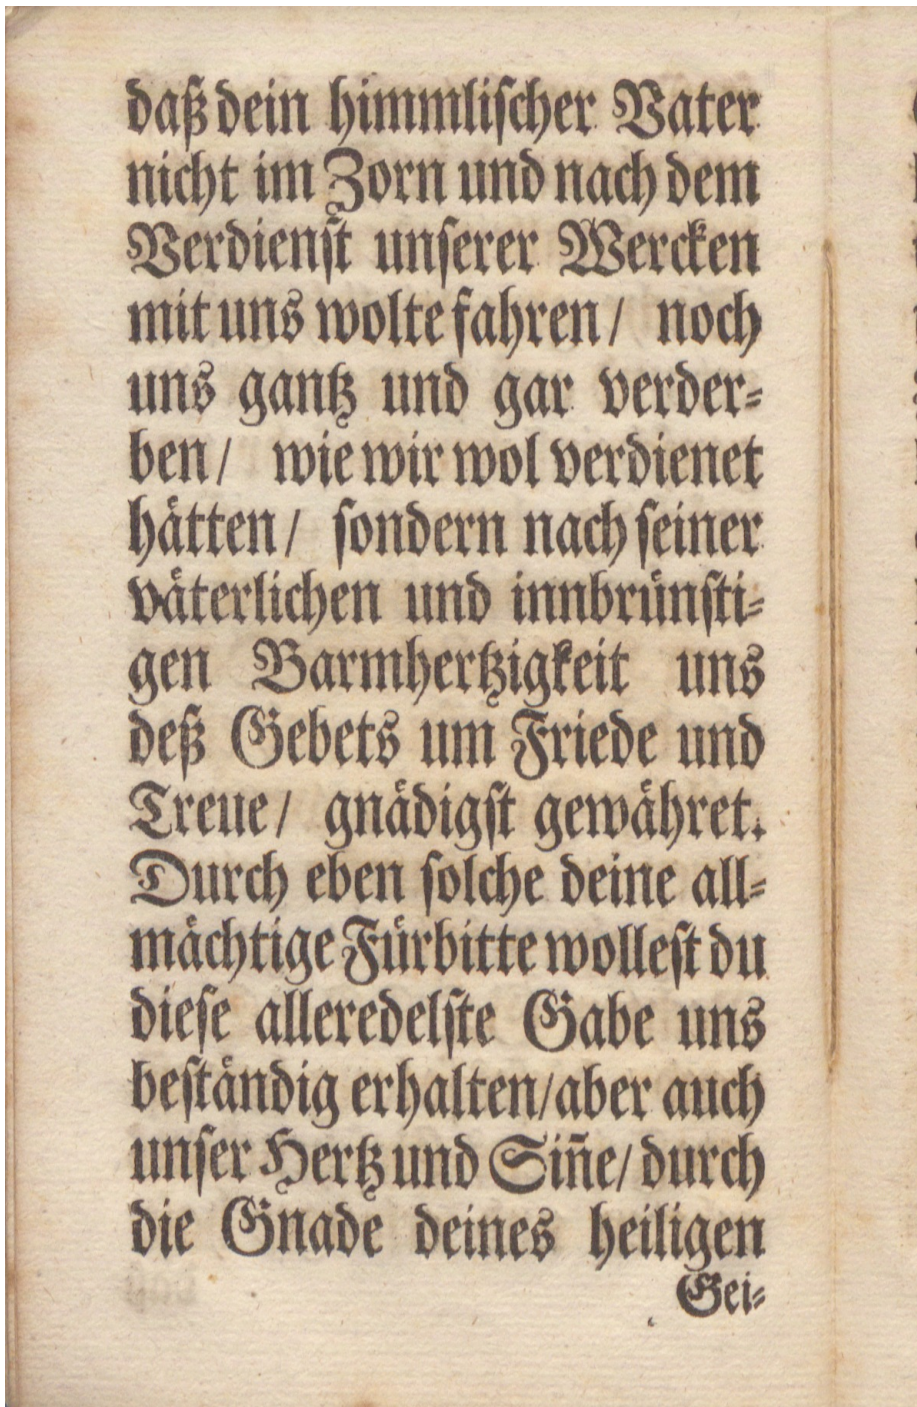 daß dein himmlischer Vater
nicht im Zorn und nach dem
Verdienst unserer Wercken
mit uns wolte fahren / noch
uns gantz und gar verder-
ben / wie wir wol verdienet
hätten / sondern nach seiner
väterlichen und innbrünsti-
gen Barmhertzigkeit uns
deß Gebets um Friede und
Treue / gnädigst gewähret.
Durch eben solche deine all-
mächtige Fürbitte wollest du
diese alleredelste Gabe uns
beständig erhalten / aber auch
unser Hertz und Siñe / durch
die Gnade deines heiligen
Gei-